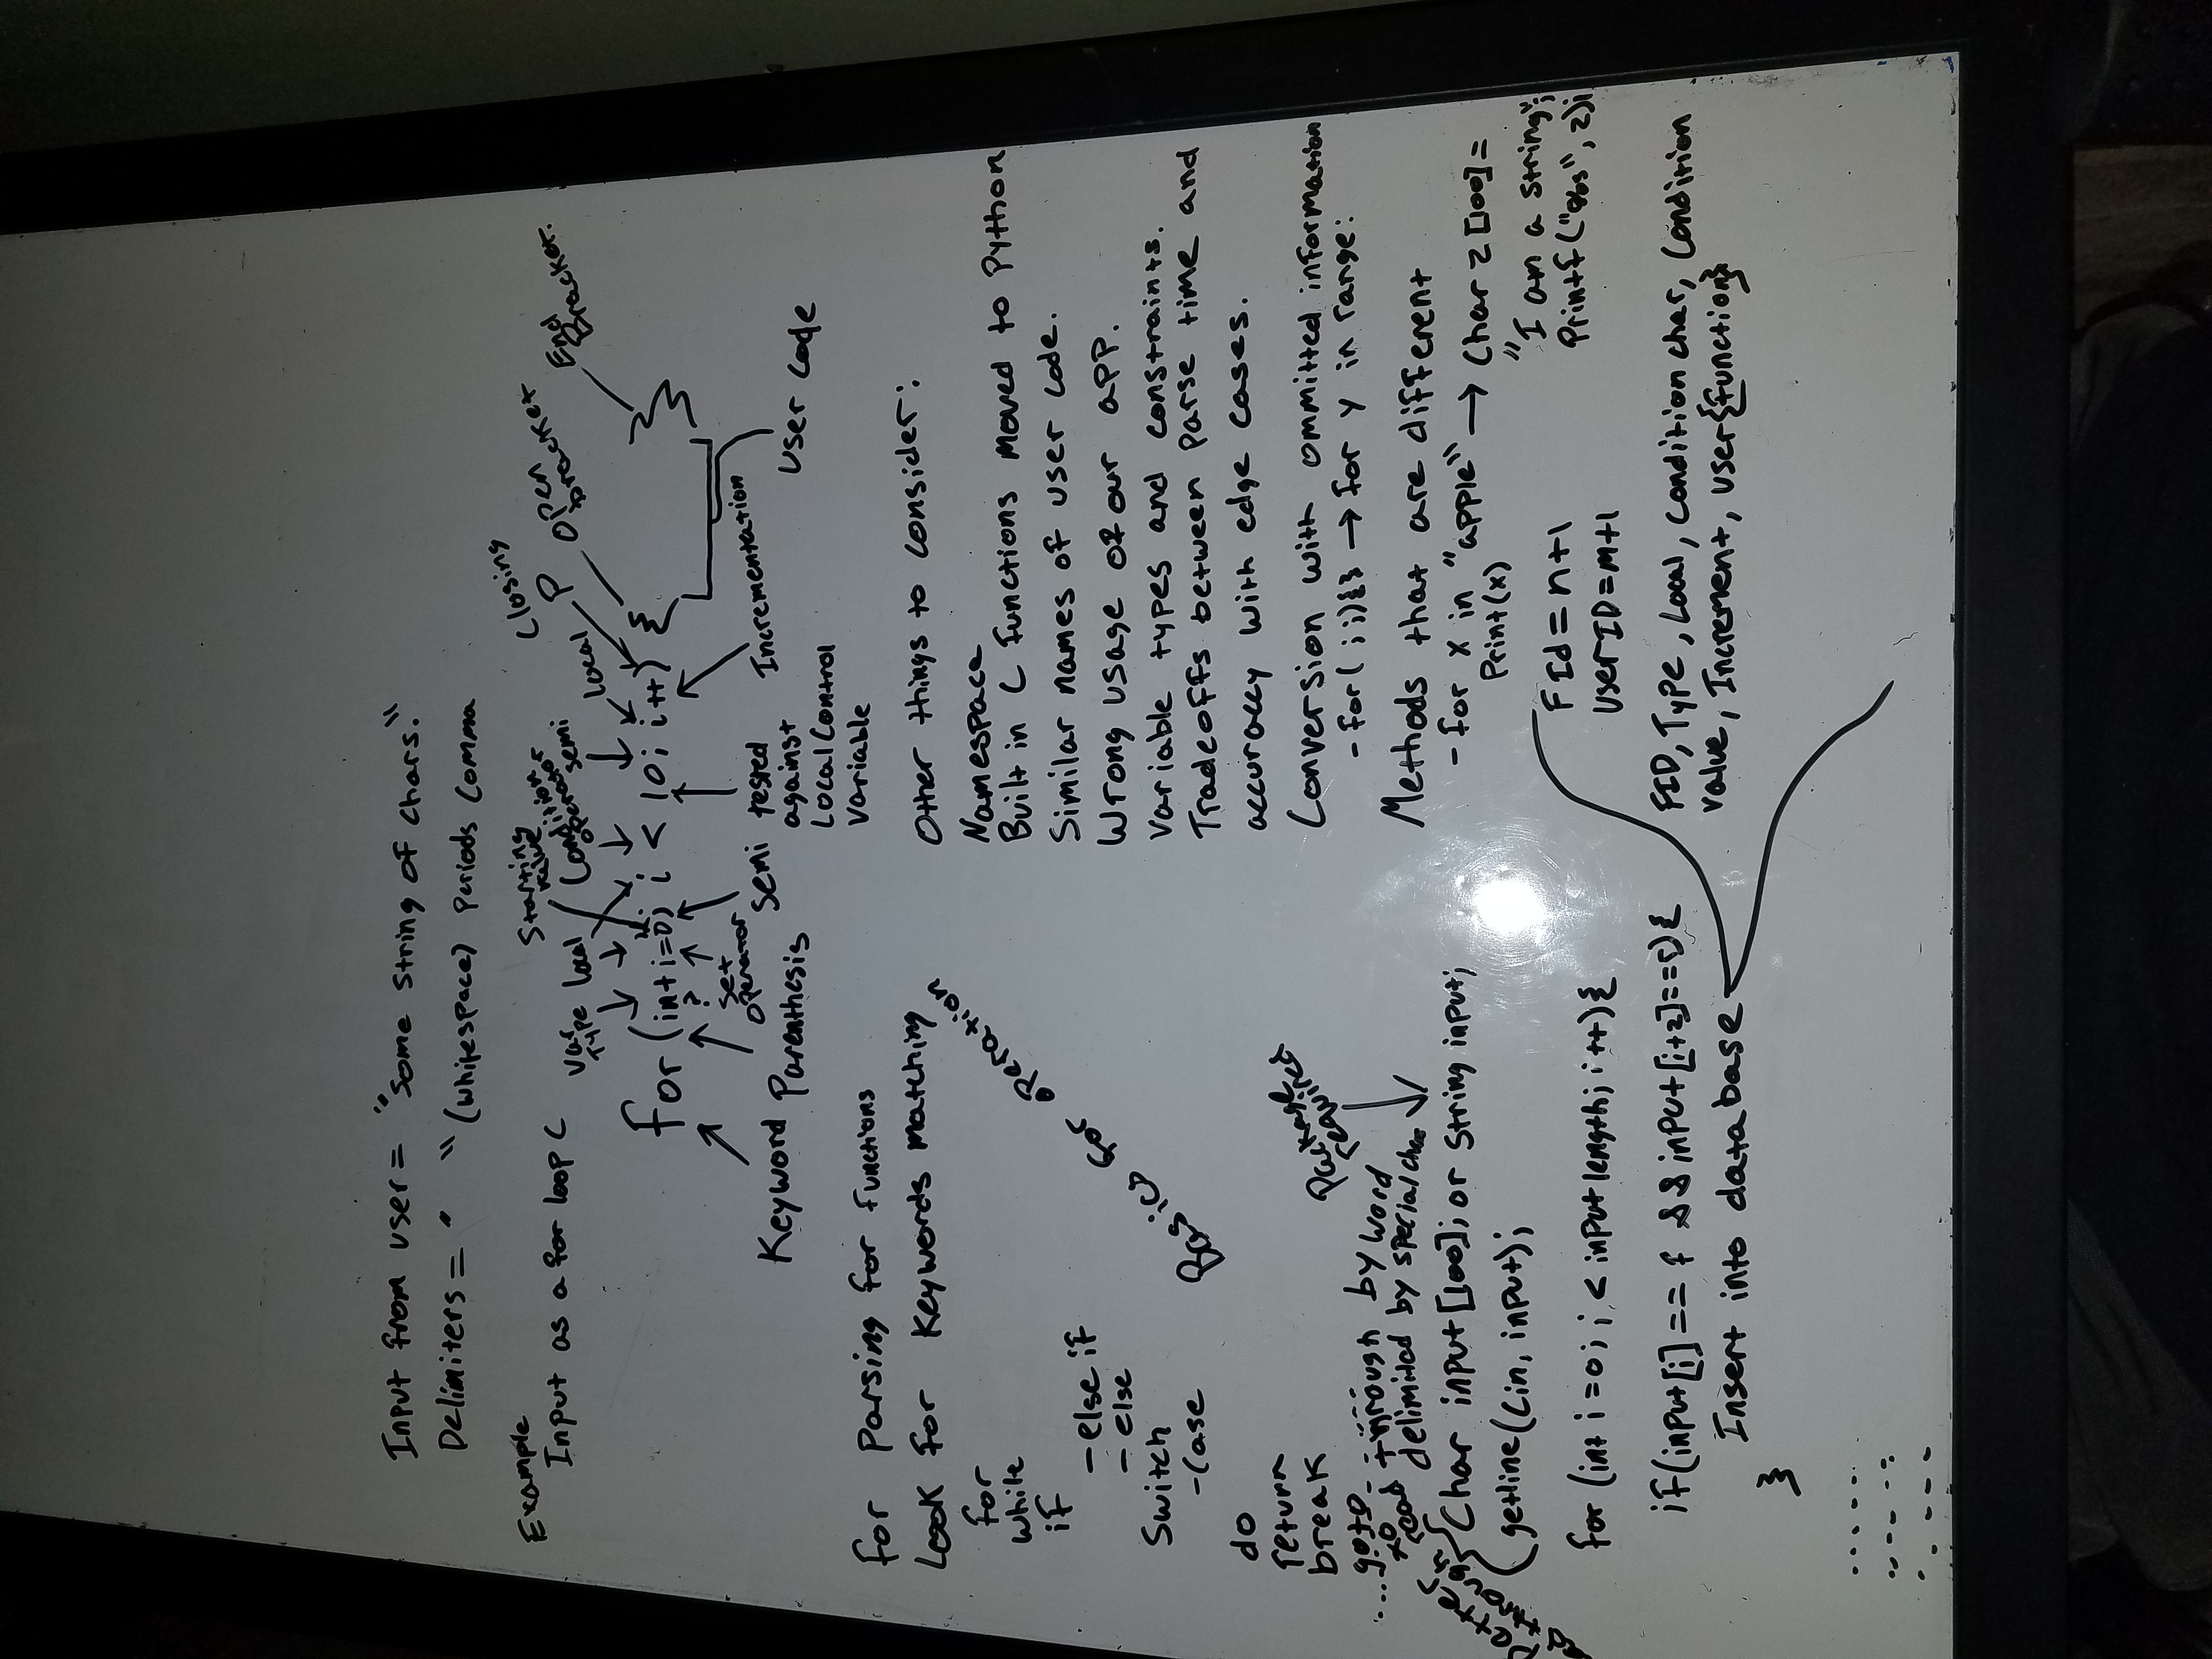 Input from user = "Some String of chars."
Delimiters = " " (whitespace) Periods Comma
Example
Input as a for loop C
Var Type
local
Starting Value
Condition operator
semi
Local
Closing P
Open bracket
End Bracket.
for (int i=0; i < 10; i++) { }
?
Keyword
Parenthesis
Set operator
Semi
tested
against
Local Control
Variable
Incrementation
User code
for Parsing for functions
Look for Keywords matching
for
while
if
- else if
- else
Switch
- Case
do
return
break
goto
Basics for operation
Package required
Better to read through by word
delimited by special chars
read through
Char input [100]; or String input;
getline(Cin, input);
for (int i=0; i < input length; i++){
if(input[i] == f && input[i+2]==r){
Insert into database
}
Other things to consider:
Namespace
Built in C functions moved to Python
Similar names of user code.
Wrong usage of our app.
Variable types and constraints.
Tradeoffs between Parse time and
accuraccy with edge cases.
Conversion with ommitted information
- for( ;;){} → for y in range:
Methods that are different
- for x in "apple" → Char z [100]=
Print(x)
"I am a string";
Printf("%s", z);
FId = n+1
UserID = m+1
FID, Type, Local, Condition char, Condition
value, Increment, user{function}